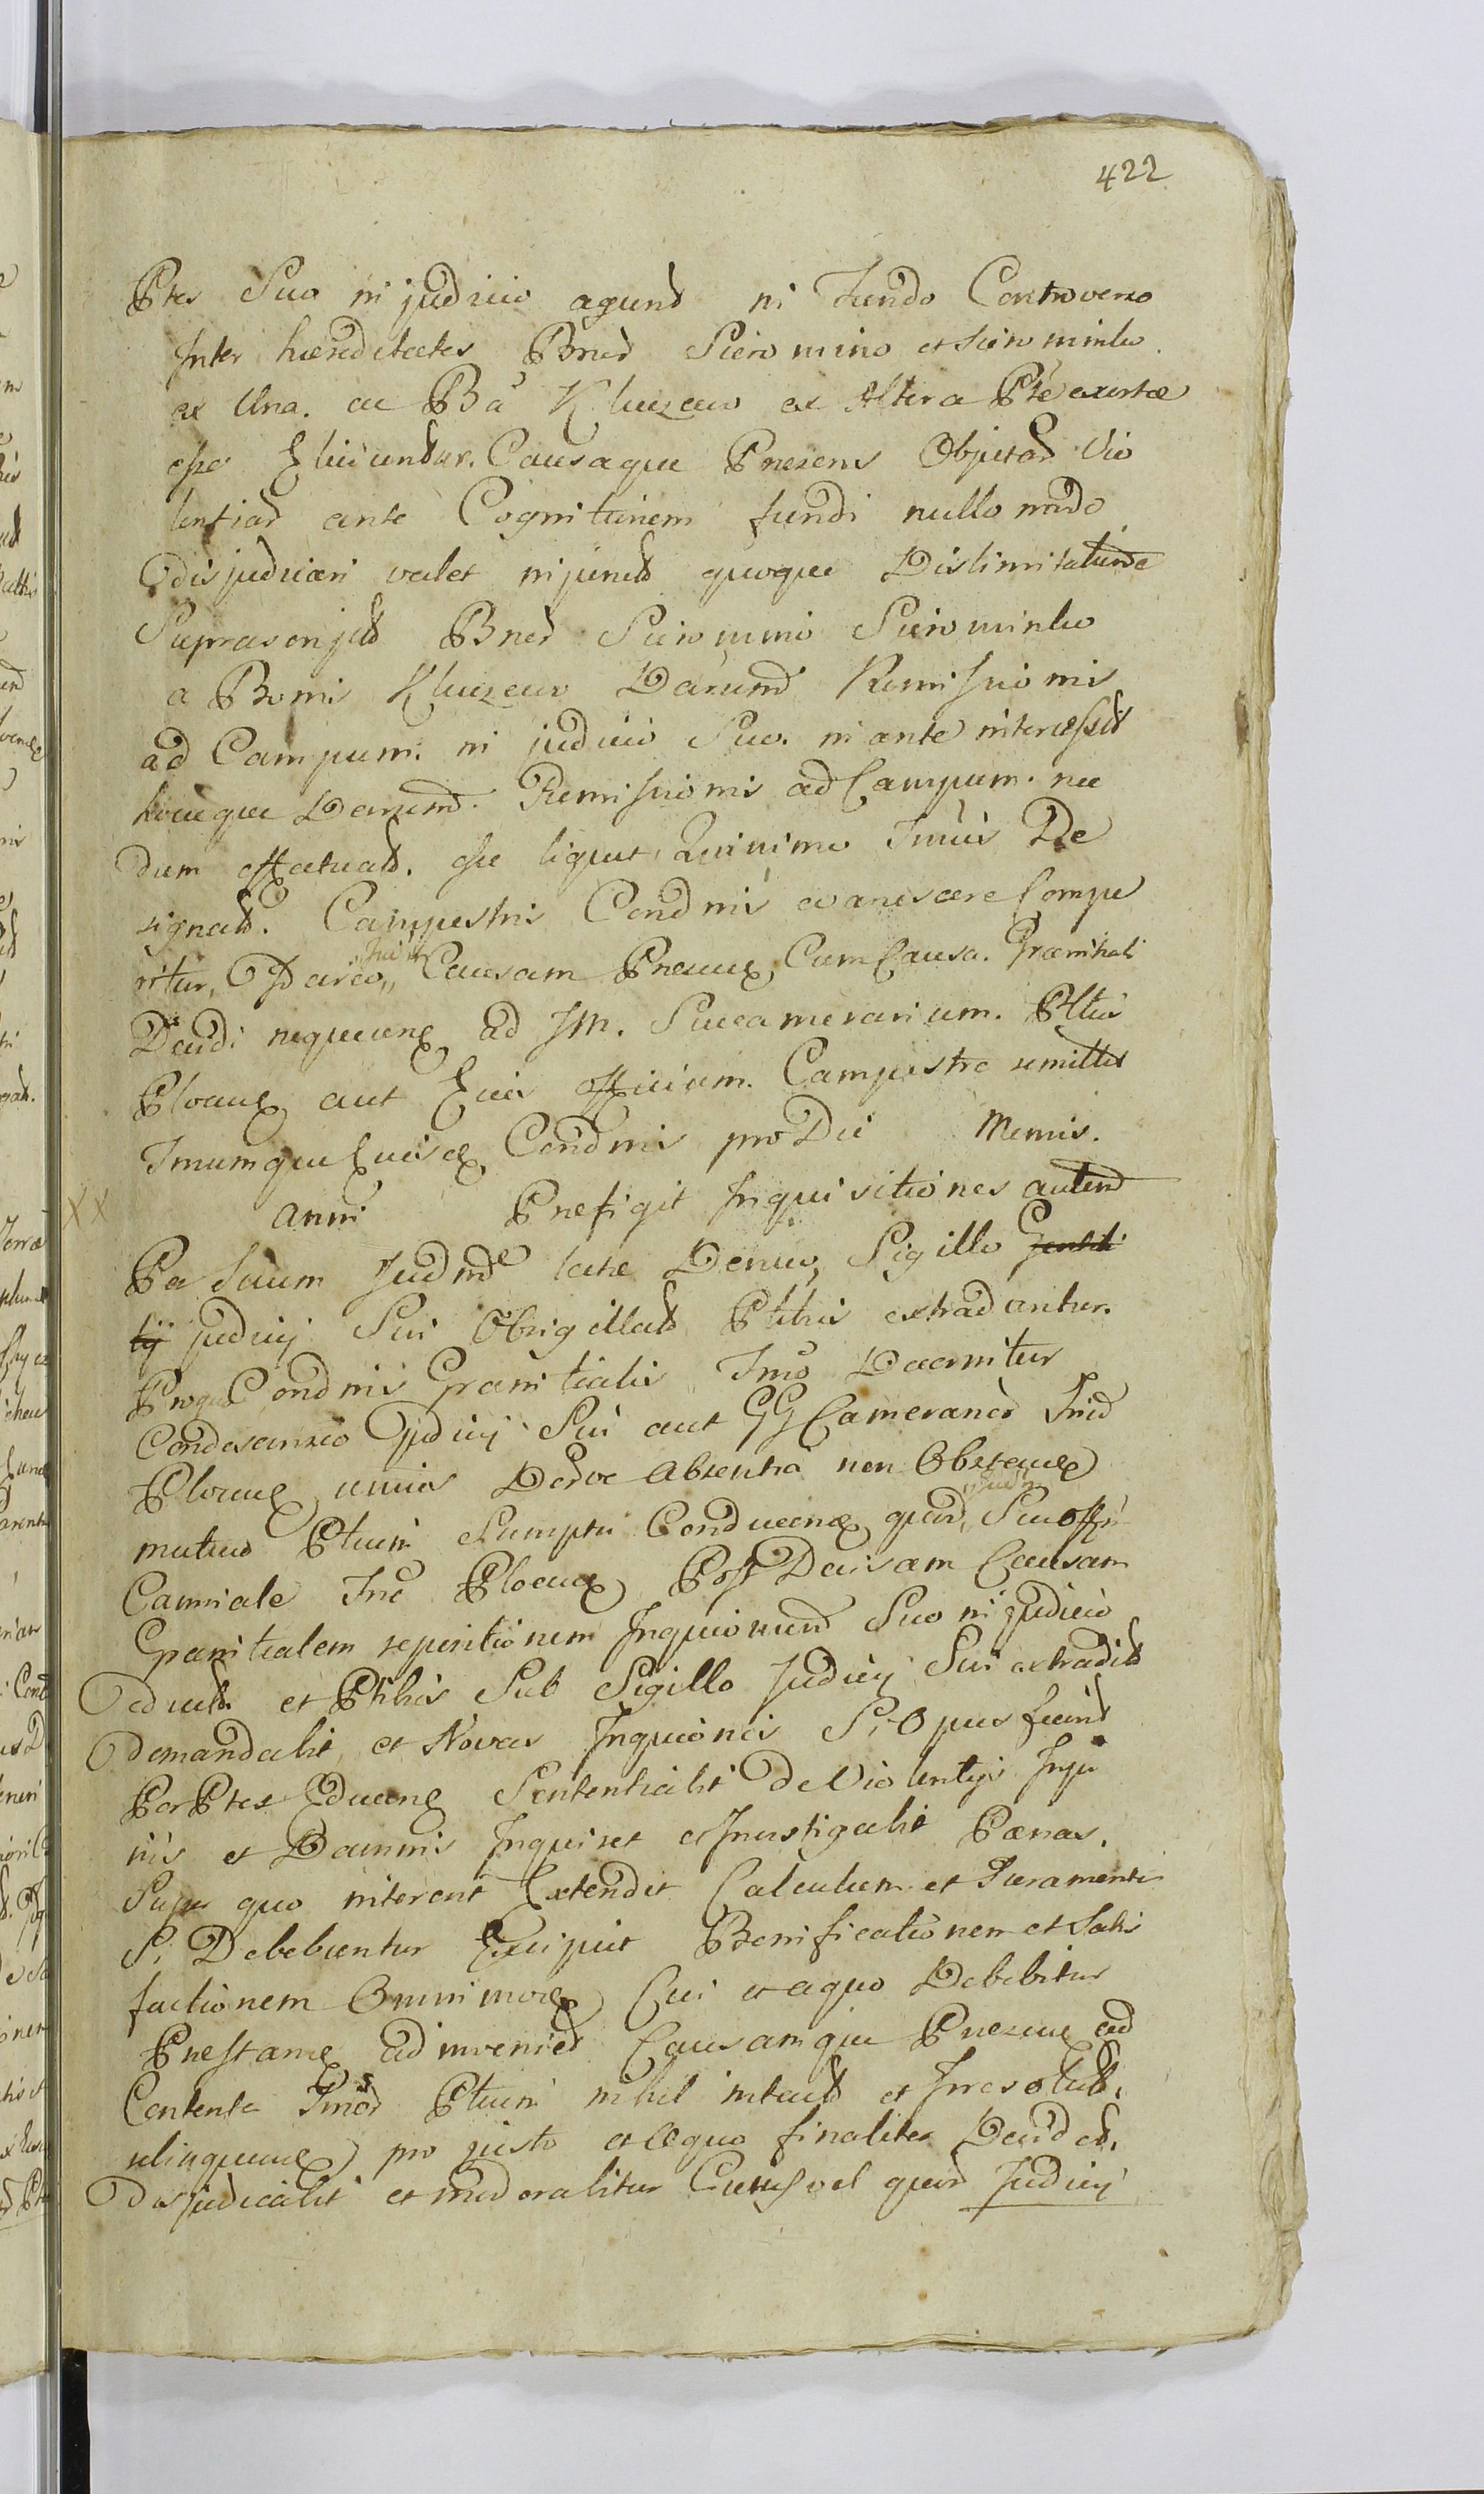 422
Ptes Suo in judicio agend in Fundo Controverso
Inter hæreditates Bnor Sieromino et Sierominko
ex Una. ac Ba Kluszew ex Altera Pte exortæ
esse Eliciuntur. Causaque Pnesens Objectar Vio
lentiar ante Cognitionem fundi nullo modo
disjudicari valet injunctt quoque Dislimitatione
Suprasonjctt Bnor Sieromino Sierominko
a Bonis Kluszew Darum Remissionis
ad Campum. in judicio Suo. in ante intercessitt
hocque Darum. Remissionis ad Campum. nec
dum effectuatt. esse liquet, Quinimo Tmus De
signatt. Campestris Condnis evanescere Compe
ritur, Idcirco,, Causam Pnesem Cum Causa. Granitiali
Daudi nequeune ad JM. Succamerarium. Pltus
Plocen aut Ejus officium. Campestre remittit
Tmumque Ejusd Condnis pro Die Mensis.
XX
anni Prefigit Inquisitiones autem
Pa Suum Judm late Denuo, Sigillo
judicij Sui Obsigillatt Ptibus extradantur.
Proque Condnis Granitialis Tmo Decernitur
Condescensio Judicij Sui aut GG Cameranor Trid
Plocen unius Dorve Absentia non Obstante
mutuo Ptium Sumptu Conducen quod,, Suu offm
Camrale Tre Plocen Post Decisam Causam
Granitialem repetitionem Inquionum Suo in judicio
eductt. et Ptibus Sub Sigillo Judicij Sui extraditt
demandabit, et Novas Inquiones Si Opus fuerit
Per Ptes Educen Sententiabit De Violentijs Inju
riis et Damnis Inquiret et Investigabit Pænas.
Super quo niterent Extendet Calculum et Juramenta
Si Debebuntur Excipiet Bonificationem et Satis
factionem Omnimod Cui et a quo Debebitur
Prestam adinveniet Causamque Pnesem ad
Contenta Tmor Ptium nihil intactt et Irresolutt.
relinquen pro justo et æquo finaliter Decidet.
Disjudicabit et moderabitur Cujusvel quod Judicij